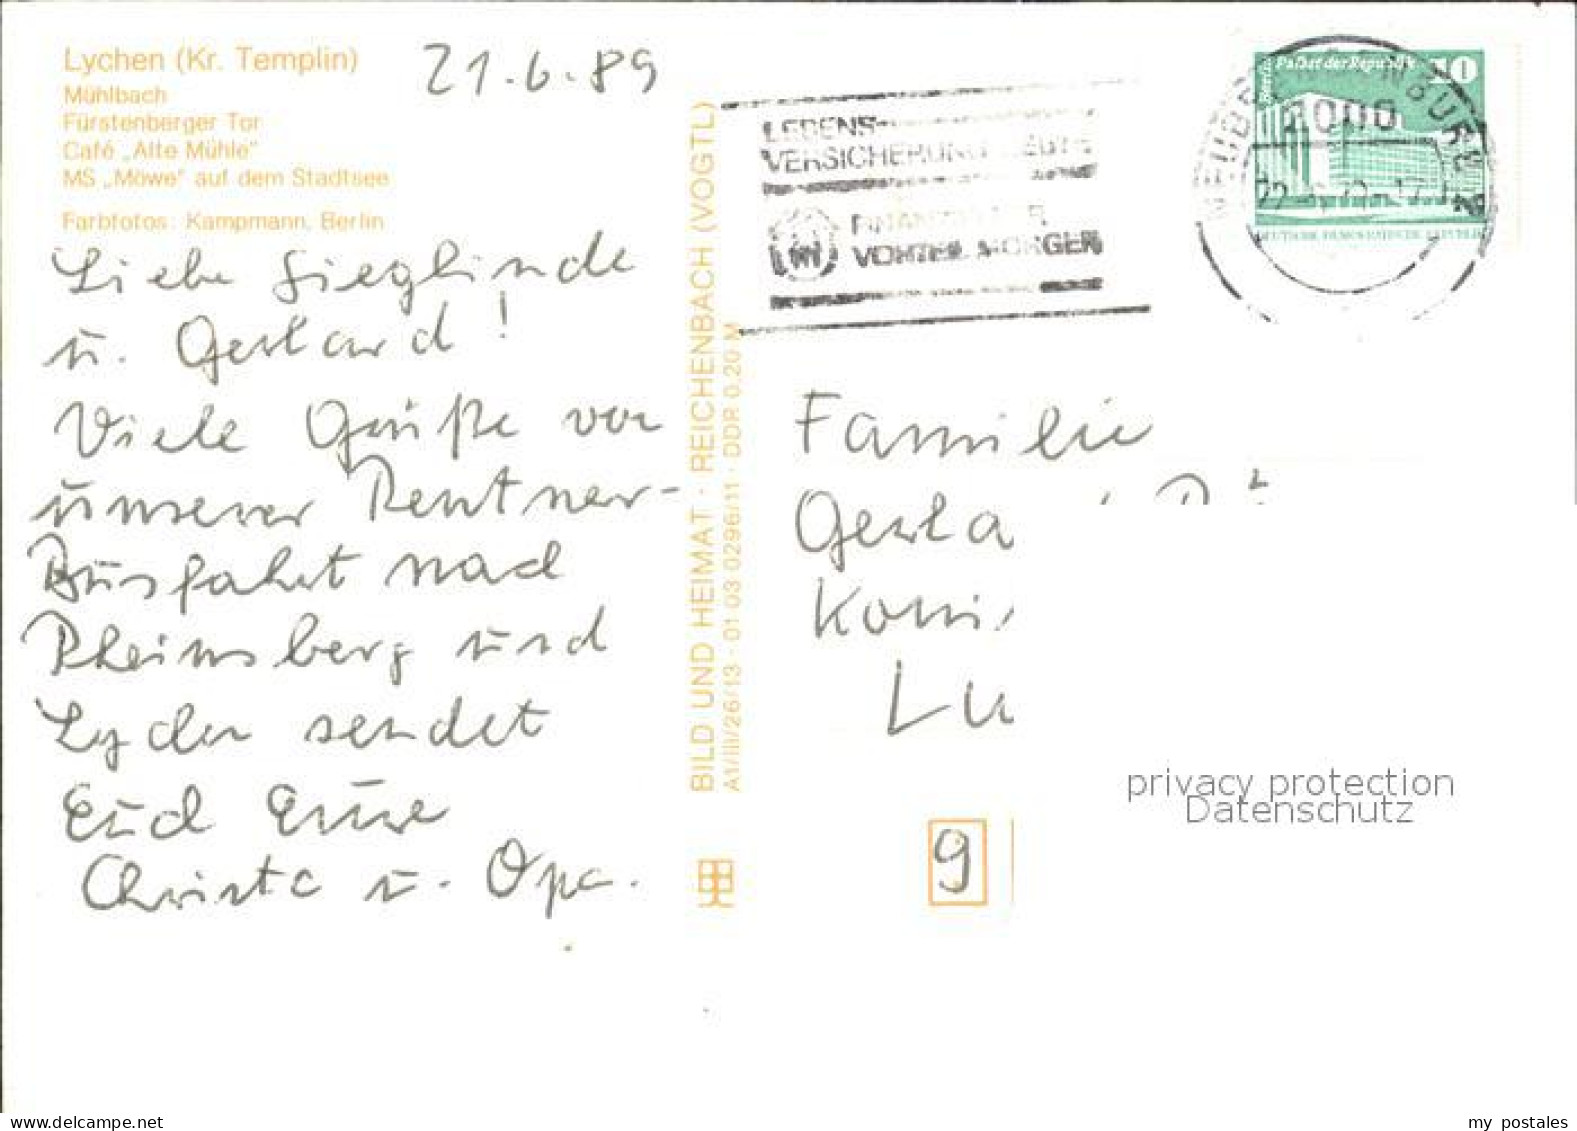 Lychen (Kr. Templin)
Mühlbach
Fürstenberger Tor
Café „Alte Mühle"
MS „Möwe" auf dem Stadtsee
Farbfotos: Kampmann, Berlin
21.6.89
Liebe Sieglinde
u. Gerhard!
Viele Grüße von
unserer Rentner-
Busfahrt nach
Rheinsberg und
Lychen sendet
Euch Eure
Christa u. Opa.
BILD UND HEIMAT · REICHENBACH (VOGTL)
A1/III/26/13 · 01 03 0296/11 · DDR 0,20 M
LEBENS-
VERSICHERUNG HEUTE
FINANZIELLER
VORTEIL MORGEN
NEUBRANDENBURG
2000
Berlin Palast der Republik 10
DEUTSCHE DEMOKRATISCHE REPUBLIK
Familie
Gerha
Lu
9
privacy protection
Datenschutz
www.delcampe.net
my_postales